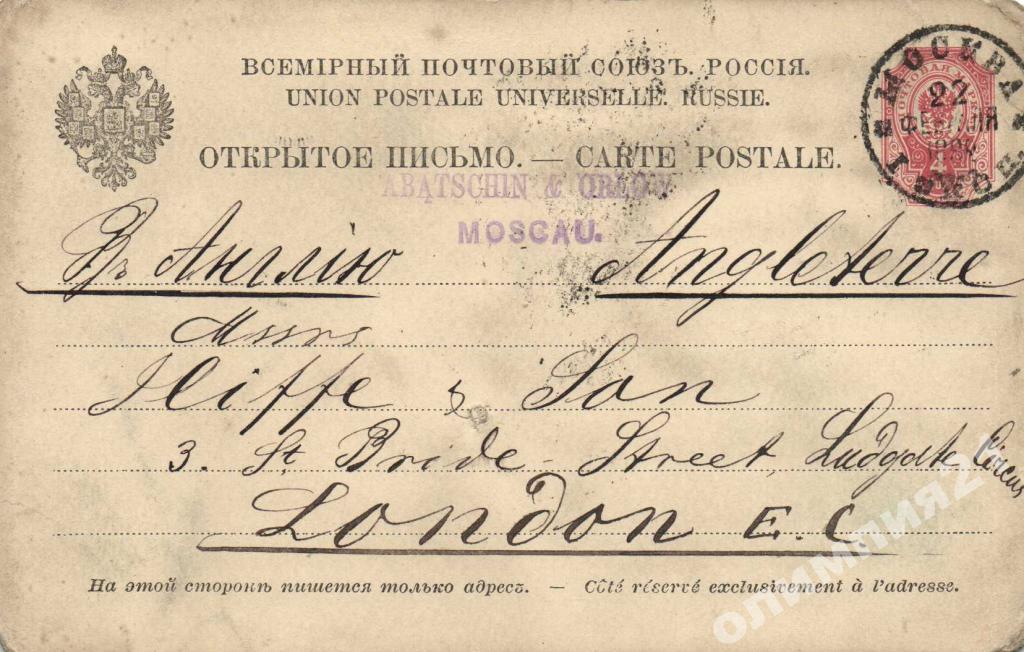 ВСЕМІРНЫЙ ПОЧТОВЫЙ СОЮЗЪ. РОССІЯ.
UNION POSTALE UNIVERSELLE. RUSSIE.
МОСКВА
22
ОТКРЫТОЕ ПИСЬМО. — CARTE POSTALE.
ABATSCHIN & ORLOW
MOSCAU.
Въ Англію Angleterre
Mssrs
Iliffe & Son
3. St Bride-Street, Ludgate Circus
London E.C
На этой сторонѣ пишется только адресъ. — Côté réservé exclusivement à l'adresse.
олимпия21